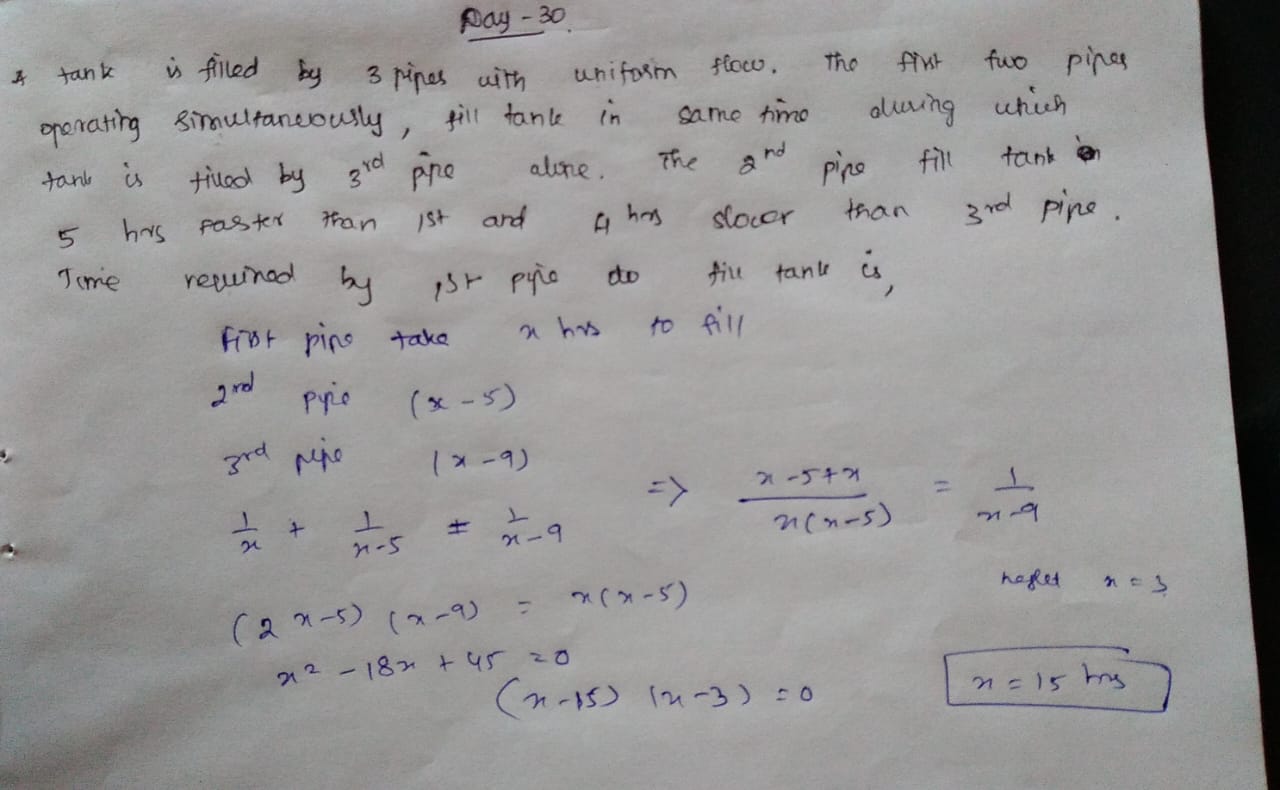 Day - 30
A tank is filled by 3 pipes with uniform flow. The first two pipes
operating simultaneously, fill tank in same time during which
tank is filled by 3rd pipe alone. The 2nd pipe fill tank
5 hrs faster than 1st and 4 hrs slower than 3rd pipe.
Time required by 1st pipe do fill tank is,
First pipe take x hrs to fill
2nd pipe (x-5)
3rd pipe (x-9)
1/x + 1/x-5 = 1/x-9 => x-5+x/x(x-5) = 1/x-9
(2x-5)(x-9) = x(x-5) neglet x = 3
x2 - 18x + 45 = 0
(x-15) (x-3) = 0 x = 15 hrs